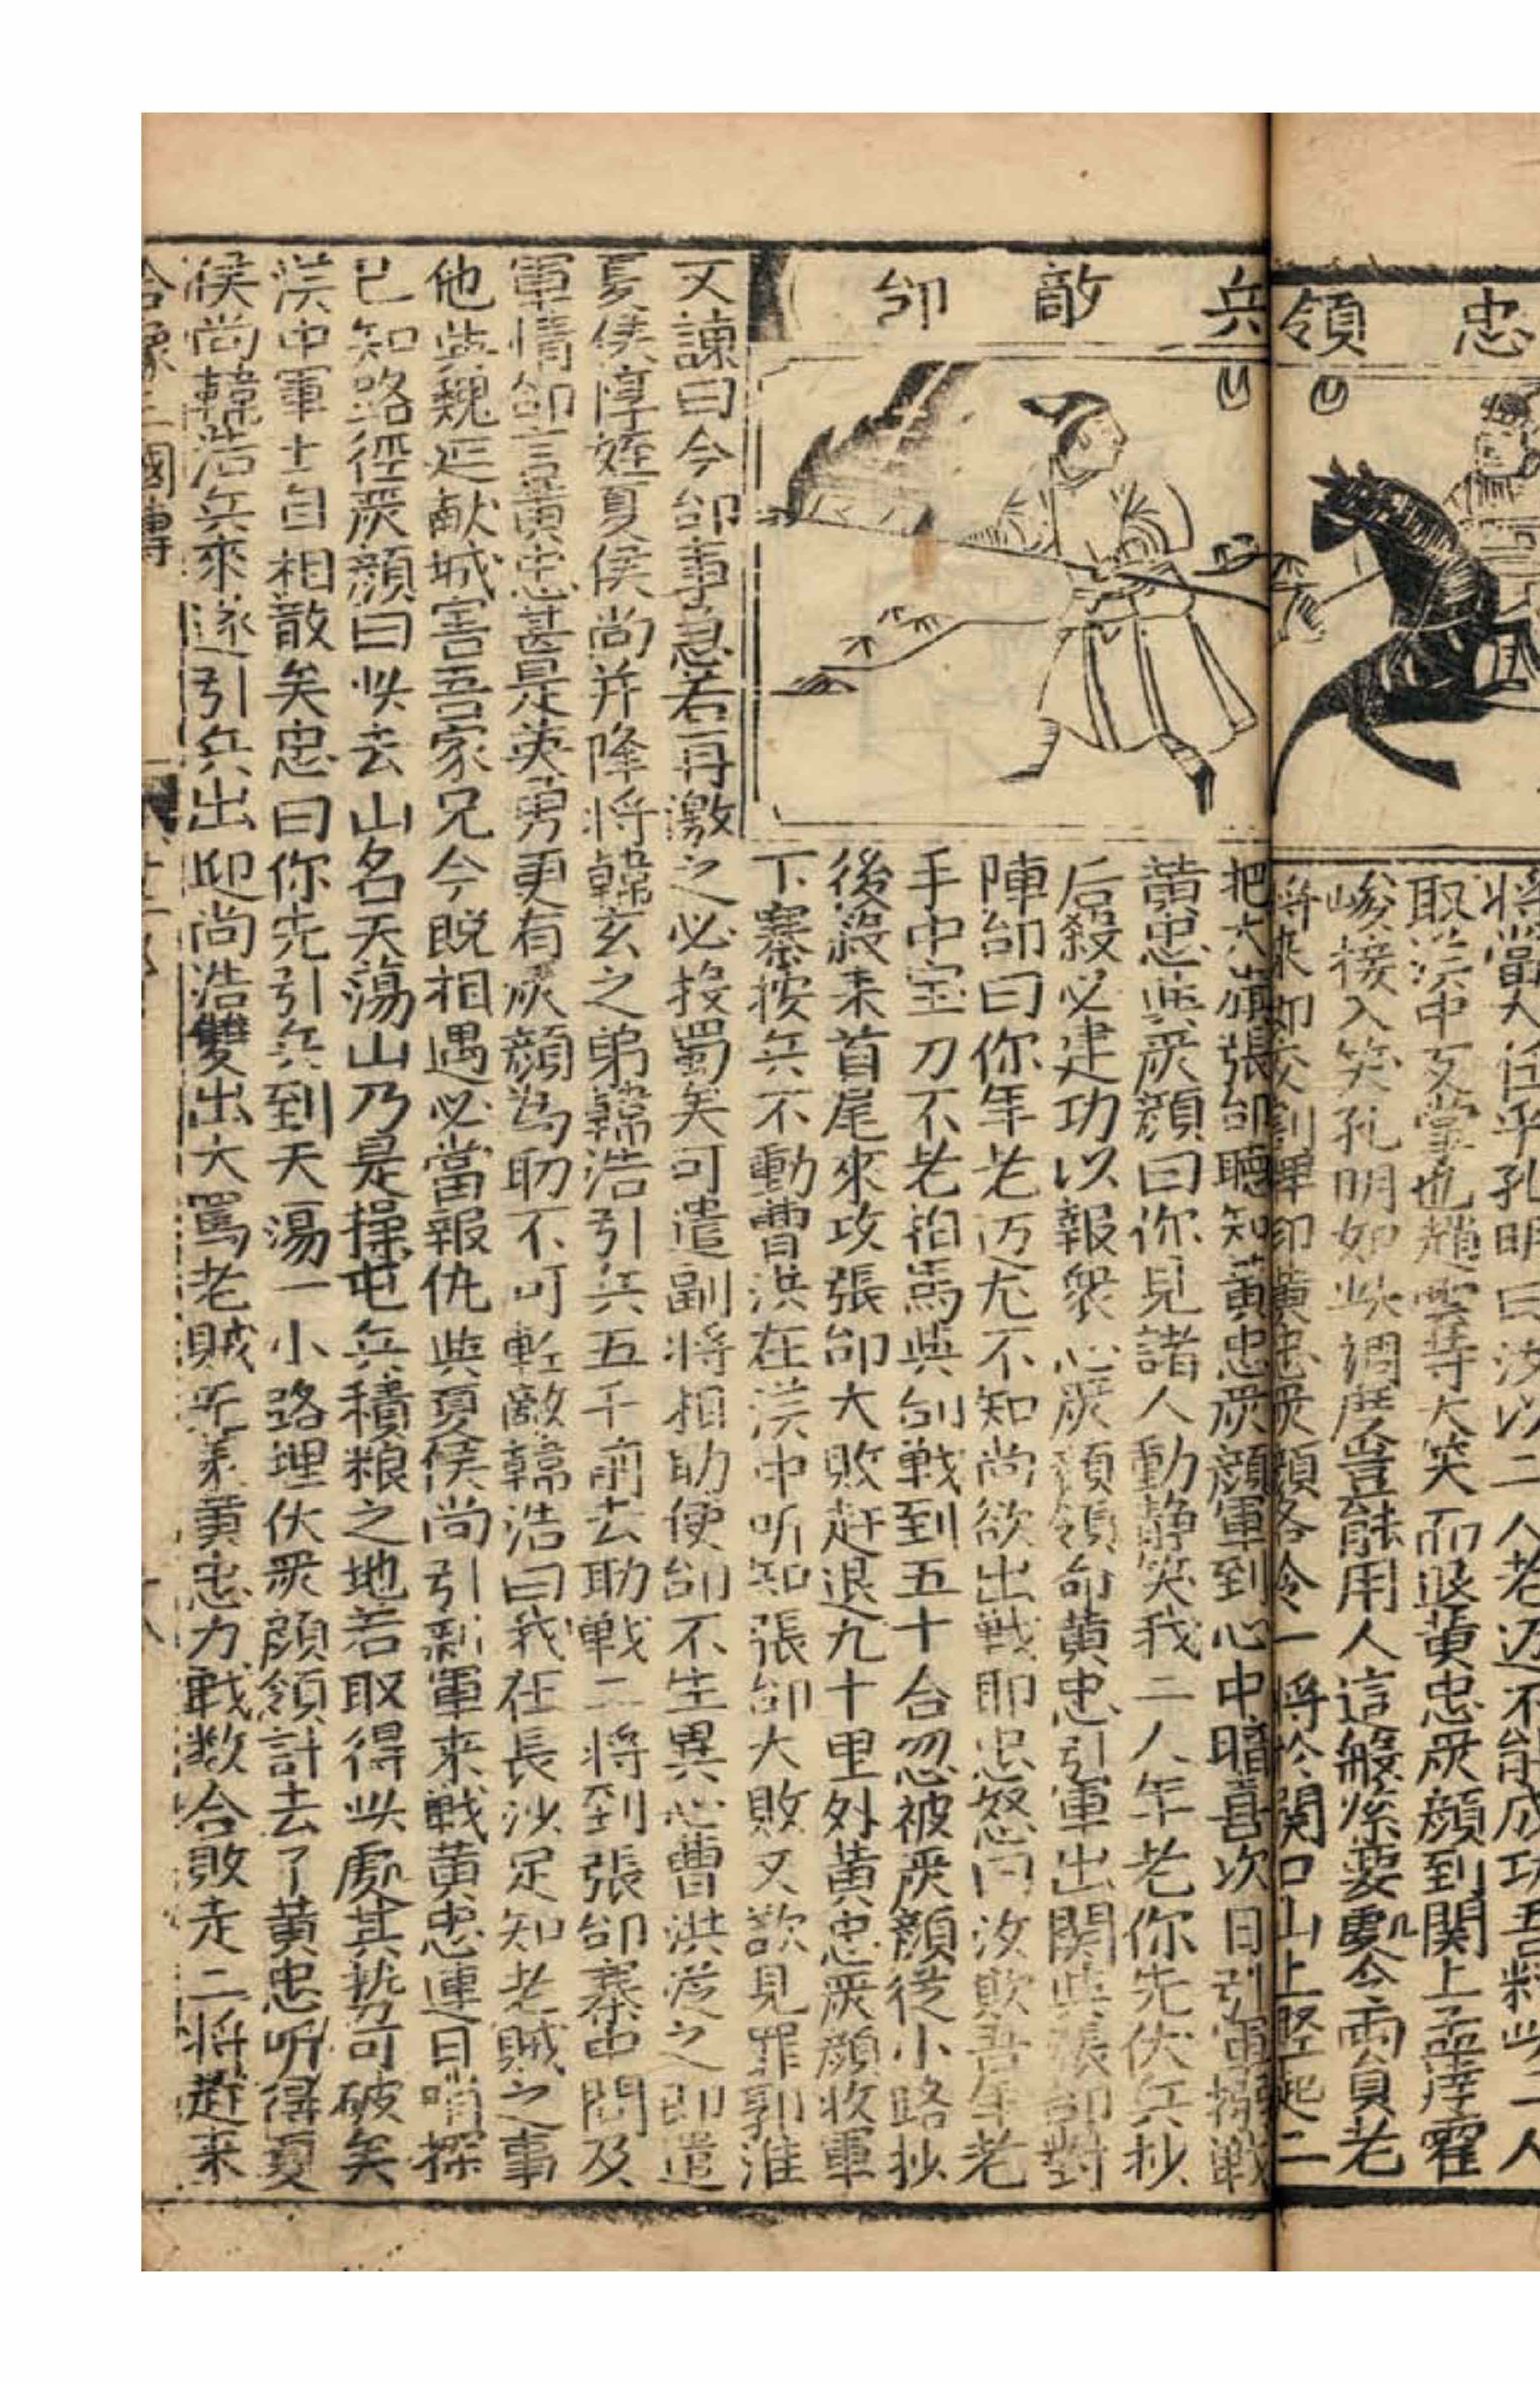 忠領
兵敵郃
將當大任乎孔明曰汝以二人老迈不能成功吾料此二人
取漢中反掌也趙雲等大笑而退黄忠严顔到関上孟達霍
峻接入笑孔明如此調度豈能用人這般緊要處今両員老
將來即交割牌印黄忠严顔各令一將於関口山上竪起二
把大旗張郃聴知黄忠严顔軍到心中暗喜次日引軍搦戦
黄忠与严顔曰你見諸人動静笑我二人年老你先伏兵抄
后殺必建功以報衆心严顔領命黄忠引軍出関与張郃對
陣郃曰你年老迈尢不知尚欲出戦耶忠怒曰汝欺吾年老
手中宝刀不老拍馬与郃戦到五十合忽被严顔従小路抄
後殺来首尾來攻張郃大敗赶退九十里外黄忠严顔收軍
下寨按兵不動曹洪在漢中听知張郃大敗又欲見罪郭淮
又諫曰今郃事急若再激之必投蜀矣可遣副将相助使郃不生異心曹洪従之即遣
夏侯惇姪夏侯尚并降将韓玄之弟韓浩引兵五千前去助戦二将到張郃寨中問及
軍情郃言黄忠甚是英勇更有严顔為助不可軽敵韓浩曰我在長沙足知老賊之事
他与魏延献城害吾家兄今既相遇必當報仇与夏侯尚引新軍来戦黄忠連日哨探
已知路徑严顔曰此去山名天蕩山乃是操屯兵積粮之地若取得此處其勢可破矣
漢中軍士自相散矣忠曰你先引兵到天蕩一小路埋伏严顔領計去了黄忠听得夏
侯尚韓浩兵來遂引兵出迎尚浩雙出大罵老賊无義黄忠力戦数合敗走二將赶来
合像三國傳